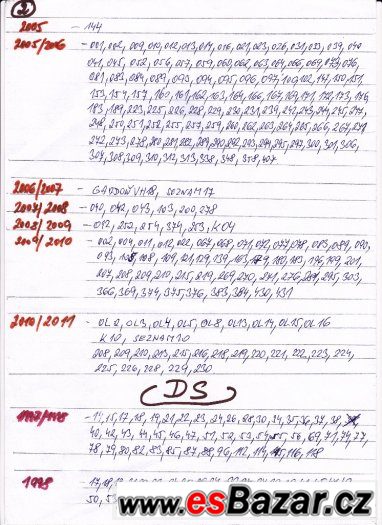 2
2005 - 144
2005/2006 - 001, 002, 009, 010, 012, 013, 014, 016, 021, 023, 026, 031, 033, 039, 040
041, 045, 052, 056, 057, 059, 060, 062, 063, 064, 066, 069, 073, 076
081, 083, 084, 089, 093, 094, 095, 096, 097, 100, 102, 147, 150, 151
153, 154, 157, 160, 161, 162, 163, 164, 166, 167, 169, 171, 172, 173, 176
183, 189, 223, 225, 226, 228, 229, 230, 231, 239, 242, 243, 244, 245, 247
248, 250, 251, 252, 255, 257, 259, 260, 262, 263, 264, 265, 266, 267, 271
272, 273, 278, 280, 281, 282, 284, 290, 292, 293, 294, 295, 297, 300, 301, 306
307, 308, 309, 310, 312, 313, 338, 348, 358, 407
2006/2007 - SEZNAM 17
2007/2008 - 040, 042, 043, 103, 200, 278
2008/2009 - 012, 252, 254, 374, 253, K04
2009/2010 - 002, 004, 011, 012, 022, 067, 068, 071, 072, 077, 078, 083, 089, 090
207, 208, 209, 210, 215, 219, 269, 270, 271, 276, 295, 303
366, 369, 374, 375, 376, 383, 384, 430, 431
2010/2011 - OL2, OL3, OL4, OL5, OL8, OL13, OL14, OL15, OL16
K10, SEZNAM 10
208, 209, 210, 213, 215, 216, 218, 219, 220, 221, 222, 223, 224
225, 226, 228, 229, 230
DS
1997/1998 - 15, 17, 18, 19, 21, 22, 23, 24, 26, 28, 30, 34, 35, 36, 37, 38
40, 42, 43, 44, 45, 46, 47, 51, 52, 53, 54, 55, 56, 69, 71, 74, 77
78, 79, 80, 82, 83, 85, 87, 88, 96, 112, 114, 115, 116, 118
1998
50, 53
www.esBazar.cz